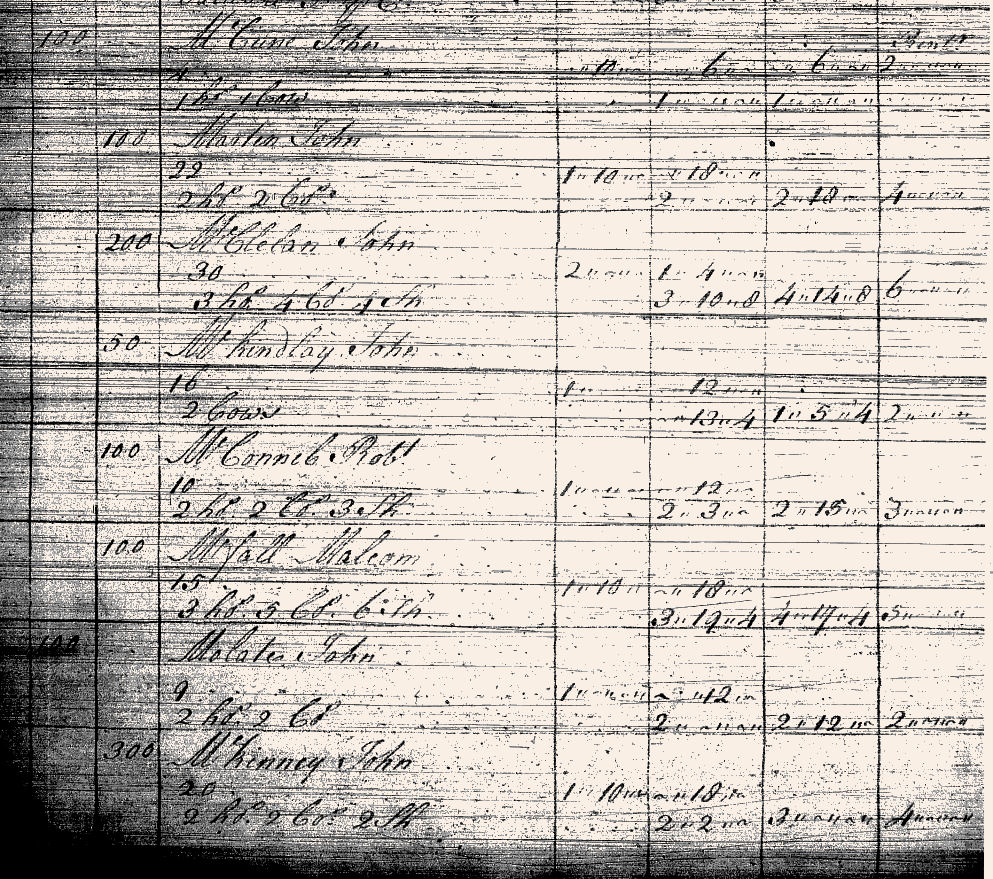 100 McCune John
" 10 " " " 6 " " " 6 " " 2 " "
1 hs 1 Cow 1 " " " 1 " " "
100 Martin John
22 1 " 10 " " " 18 " "
2 hs 2 Cs 2 " " " 2 " 18 " 4 " "
200 McClelan John
30 2 " " " 1 " 4 " "
3 hs 4 Cs 4 Sh 3 " 10 " 8 4 " 14 " 8 6 " "
50 McKindlay John
16 1 " " 12 " "
2 Cows " 13 " 4 1 " 5 " 4 2 " "
100 McConneb Robt
10 1 " " " " 12 "
2 hs 2 Cs 3 Sh 2 " 3 " " 2 " 15 " " 3 " "
100 McFall Malcom
15 1 " 10 " " 18 "
3 hs 5 Cs 6 Sh 3 " 19 " 4 4 " 17 " 4 5 " "
100 John
9 1 " " " " 12 "
2 hs 2 Cs 2 " " " 2 " 12 " 2 " "
300 McKenney John
20 1 " 10 " " 18 "
2 hs 2 Cs 2 Sh 2 " 2 " " 3 " " " 4 " "